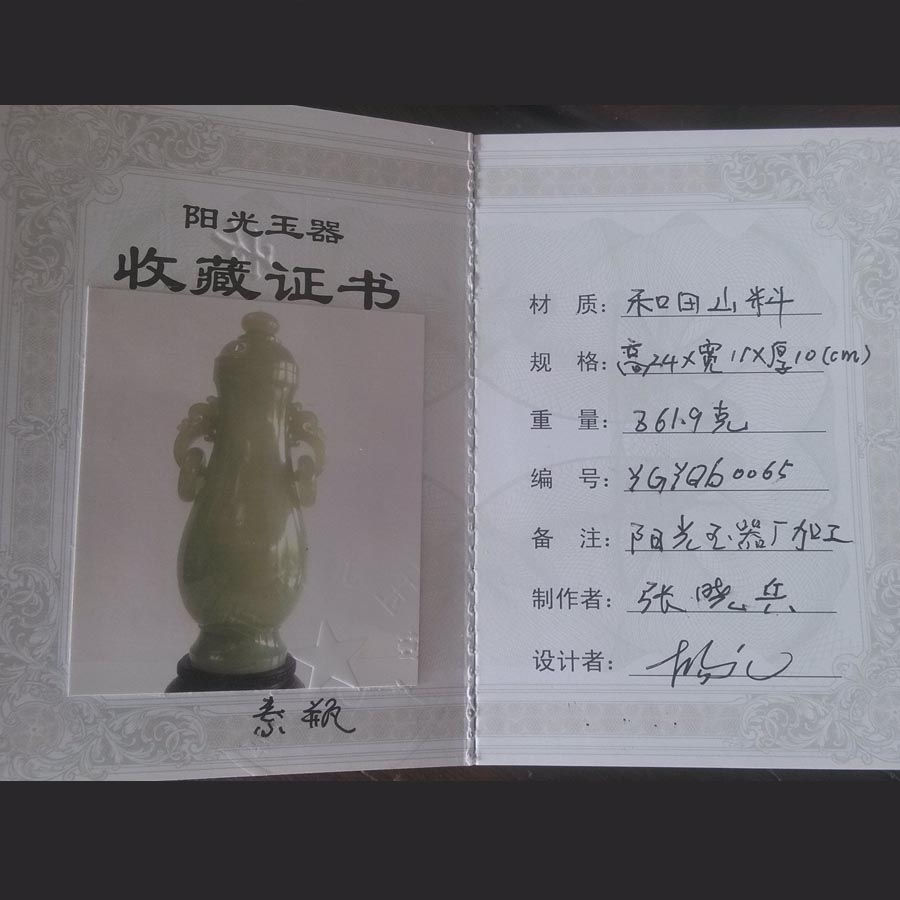 阳光玉器
收藏证书
素瓶
材 质：和田山料
规 格：高24×宽15×厚10(cm)
重 量：861.9克
编 号：YGYQB0065
备 注：阳光玉器厂加工
制作者：张晓兵
设计者：